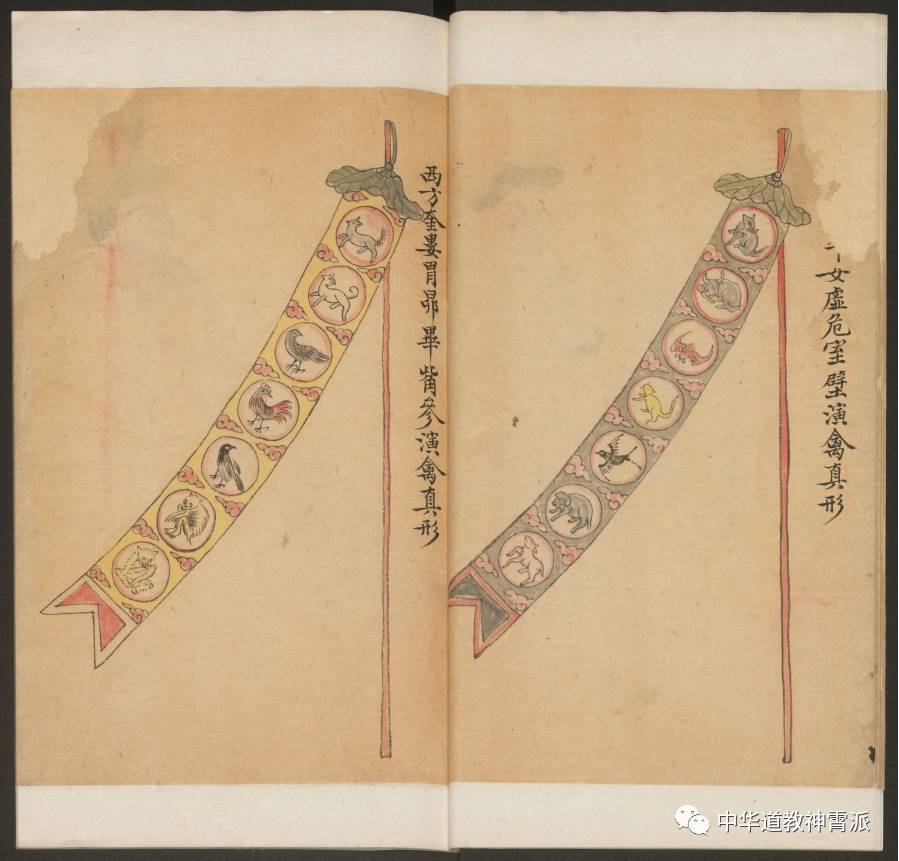 女虛危室壁演禽真形
西方奎婁胃昴畢觜參演禽真形
中华道教神霄派